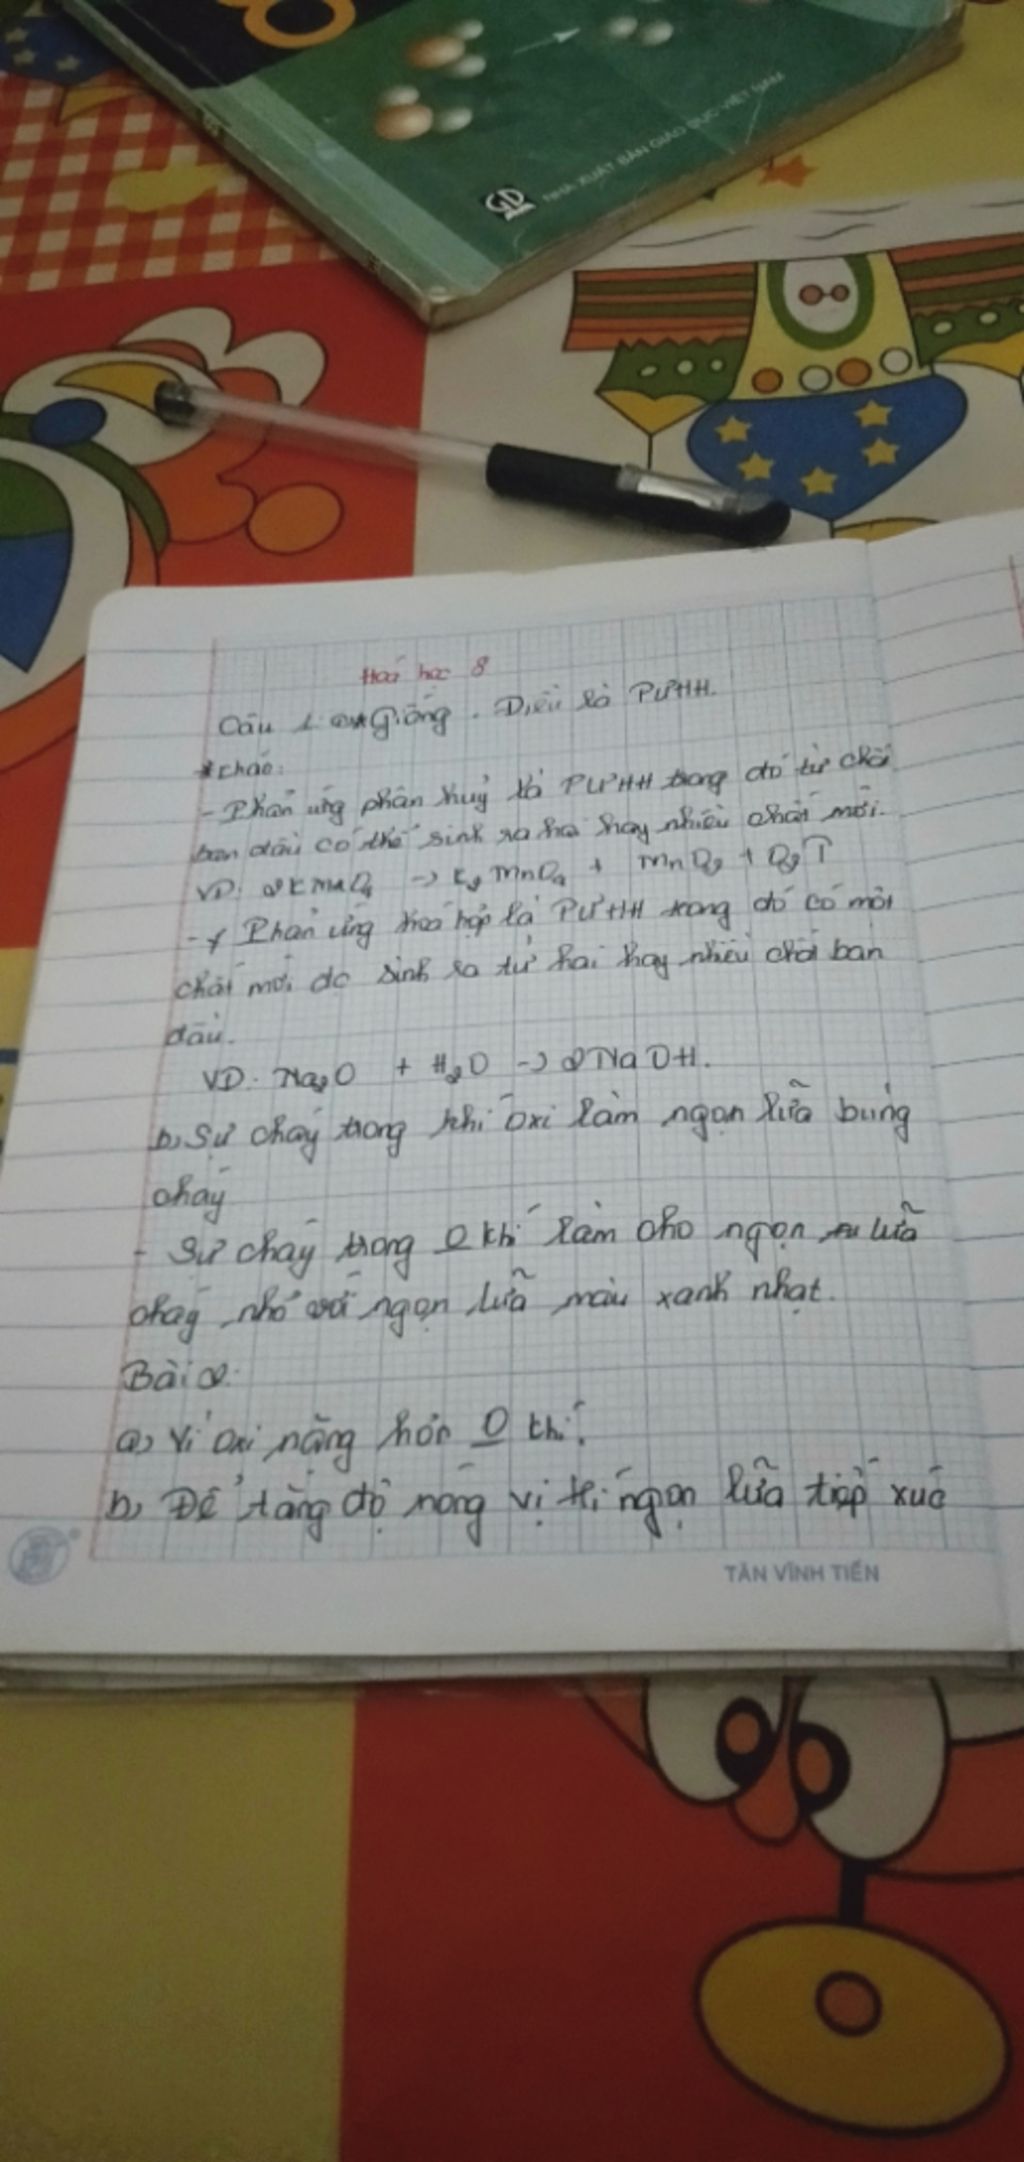 8
NHÀ XUẤT BẢN GIÁO DỤC VIỆT NAM
GD
Hoá học 8
Câu 1 Giống. Điều là PƯHH.
*Khác:
- Phản ứng phân huỷ là PƯHH trong đó từ chất
ban đầu có thể sinh ra hai hay nhiều chất mới.
VD: 2KMnO4 -> K2MnO4 + MnO2 + O2↑
- Phản ứng hoá hợp là PƯHH trong đó có một
chất mới dc sinh ra từ hai hay nhiều chất ban
đầu.
VD: Na2O + H2O -> 2NaOH.
b, Sự cháy trong khí oxi làm ngọn lữa bùng
cháy
- Sự cháy trong O khí làm cho ngọn lữa
cháy nhỏ với ngọn lữa màu xanh nhạt.
Bài 2:
a, Vì oxi nặng hơn O khí.
b, Để tăng độ nóng vị trí ngọn lữa tiếp xúc
TÂN VĨNH TIẾN